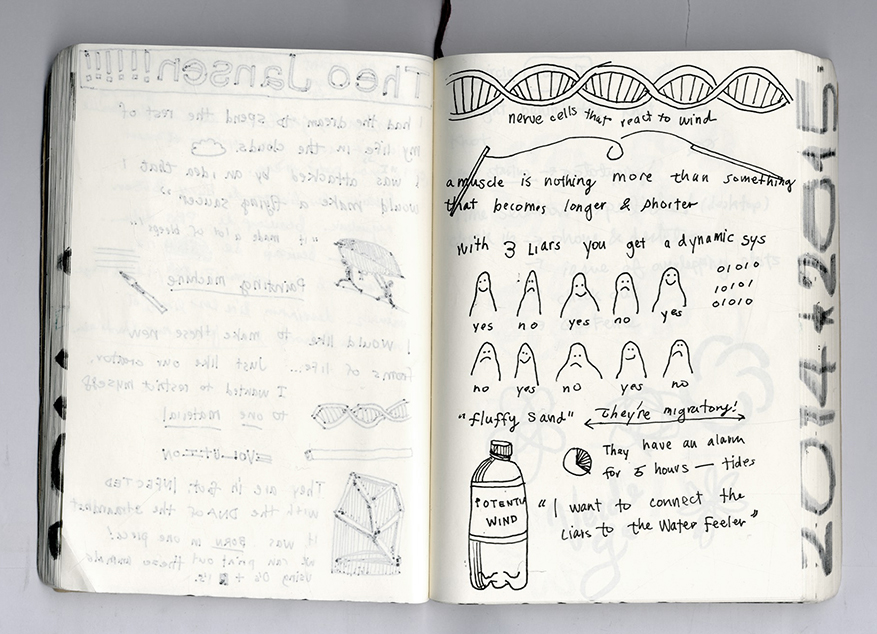 Theo Jansen!!!!!!
I had the dream to spend the rest of
my life in the clouds.
I was attacked by an idea that I
would make a flying saucer"
"it made a lot of bleeps"
Painting machine
I would like to make these new
froms of life... Just like our creator,
I wanted to restrict myself
to one material
EVOLUTION
They are in fact INFECTED
with the DNA of the
It was BORN in one piece!
we can print out these animals
using
nerve cells that react to wind
a muscle is nothing more than something
that becomes longer & shorter
with 3 Liars you get a dynamic sys
01010
10101
01010
yes no yes no yes
no yes no yes no
"fluffy sand" They're migratory!
They have an alarm
for 5 hours — tides
POTENTI
WIND
"I want to connect the
Liars to the Water Feeler"
2014 2015